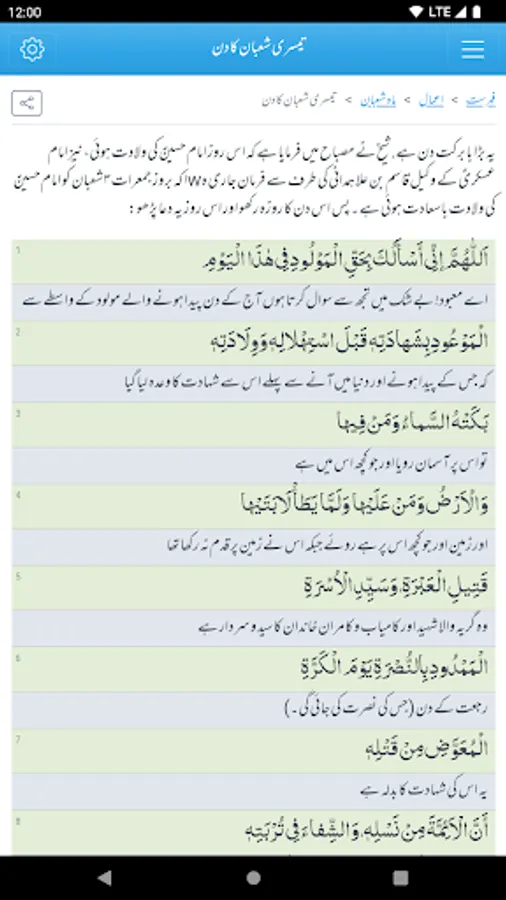 12:00 LTE
تیسری شعبان کا دن
فہرست > اعمال > ماہ شعبان > تیسری شعبان کا دن
یہ بڑا با برکت دن ہے، شیخؒ نے مصباح میں فرمایا ہے کہ اس روز امام حسینؑ کی ولادت ہوئی، نیز امام
عسکریؑ کے وکیل قاسم بن علا ہمدانی کی طرف سے فرمان جاری ہWا کہ بروز جمعرات ۳ شعبان کو امام حسینؑ
کی ولادت با سعادت ہوئی ہے۔ پس اس دن کا روزہ رکھو اور اس روز یہ دعا پڑھو:
1
اَللّٰهُمَّ اِنِّىْ اَسْاَلُكَ بِحَقِّ الْمَوْلُوْدِ فِىْ هٰذَا الْيَوْمِ،
اے معبود! بے شک میں تجھ سے سوال کرتا ہوں آج کے دن پیدا ہونے والے مولود کے واسطے سے
2
الْمَوْعُوْدِ بِشَهادَتِهٖ قَبْلَ اسْتِهْلالِهٖ وَ وِلَادَتِهٖ
کہ جس کے پیدا ہونے اور دنیا میں آنے سے پہلے اس سے شہادت کا وعدہ لیا گیا
3
بَكَتْهُ السَّماۤءُ وَمَنْ فِيها
تو اس پر آسمان رویا اور جو کچھ اس میں ہے
4
وَالْاَرْضُ وَمَنْ عَلَيْها وَلَمَّا يَطَاْ لَابَتَيْها
اور زمین اور جو کچھ اس پر ہے روئے جبکہ اس نے زمین پر قدم نہ رکھا تھا
5
قَتِيلِ الْعَبْرَةِ، وَسَيِّدِ الْاُسْرَةِ
وہ گریہ والا شہید اور کامیاب و کامران خاندان کا سید و سردار ہے
6
الْمَمْدُودِ بِالنُّصْرَةِ يَوْمَ الْكَرَّةِ
رجعت کے دن (جس کی نصرت کی جائی گی۔)
7
الْمُعَوَّضِ مِنْ قَتْلِهٖ
یہ اس کی شہادت کا بدلہ ہے
8
اَنَّ الْاَئِمَّةَ مِنْ نَسْلِهٖ، وَالشِّفاۤءَ فِى تُرْبَتِهٖ